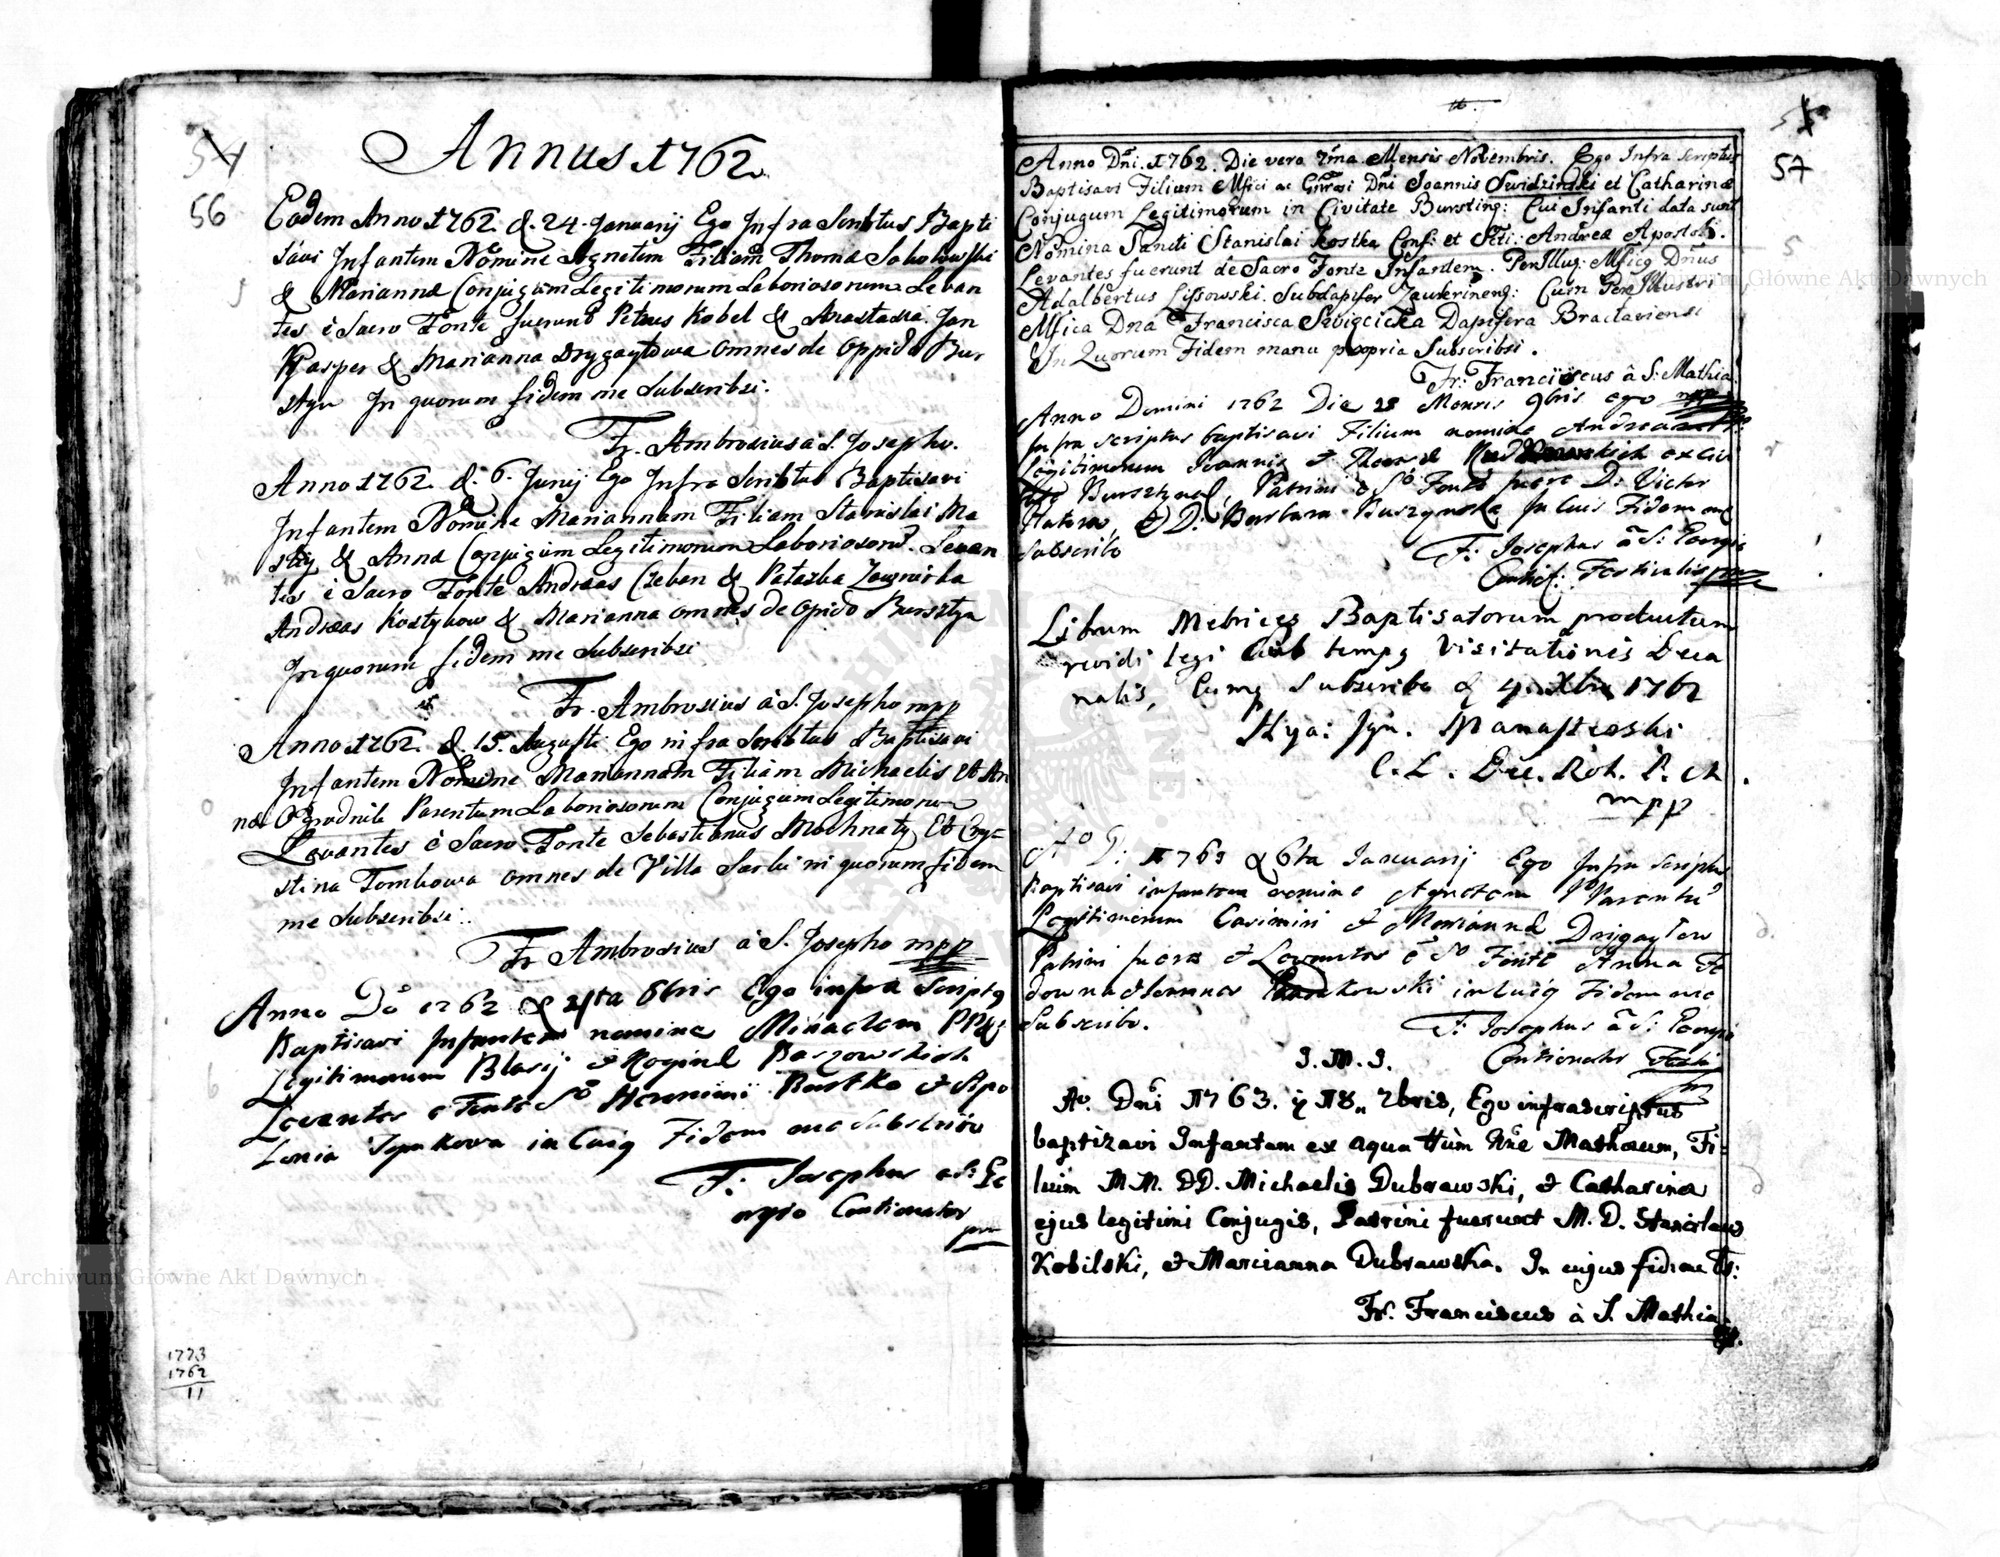 54
Annus 1762.
56
Eodem Anno 1762. d. 24. Januarij Ego Infra Scribtus Bapti
savi Infantem Nomine Agnetem Filiam Thoma Sokołowski
& Marianna Conjugum Legitimorum Laboriosorum Levan
tes è Sacro Fonte fuerunt Petrus Kobel & Anastasia. Jan
Kasper & Marianna Drygaytowa omnes de Oppido Bur
styn In quorum fidem me Subscribsi:
Fr. Ambrosius à S. Josepho.
Anno 1762. d. 6. Junij Ego Infra Scribtus Baptisavi
Infantem Nomine Mariannam Filiam Stanislai Ma
& Anna Conjugum Legitimorum Laboriosorum. Levan
tes è Sacro Fonte Andreas Czeban &
Andreas Kostykow & Marianna omnes de Opido Bursztyn
In quorum fidem me Subscribsi
Fr. Ambrosius à S. Josepho mpp
Anno 1762. d. 15. Augusti Ego infra Scribtus Baptisavi
Infantem Nomine Mariannam Filiam Michaelis Et An
na Ogrodnik Parentum Laboriosorum Conjugum Legitimorum
Levantes è Sacro Fonte Sebastianus Mochnaty Et Chry=
stina Tombowa omnes de Villa Sarki in quorum fidem
me Subscribsi:
Fr Ambrosius à S. Josepho mpp
Anno Dō 1762 d 21ta 8bris Ego infra Scriptg
Baptisavi Infantem nomine Michaelem
Legitimorum Blasij et Regina Kaszowskich
Levantes e Fonte So Hieronimi Rustko et Apo
lonia in Cuig Fidem me Subscribo
F: Josephus a S: Ge
orgio Contionator
1773
1762
11
57
Anno Dñi. 1762. Die vera 2ma Mensis Novembris. Ego Infra Scriptus
Baptisavi Filium Mfici ac Gnrosi Dñi Joannis Swidzinski et Catharinæ
Conjugum Legitimorum in Civitate Bursting: Cui Infanti data sunt
Nomina Sancti Stanislai Kostka Conf: et Sti: Andrea Apostoli.
Levantes fuerunt de Sacro Fonte Infantem. PerIllug: Mficg Dñus
Adalbertus Lissowski. Subdapifer Zawkrineng: Cum PerIllustri
Mfica Dna Francisca Swięcicka Dapifera Bractaviensi
In Quorum Fidem manu propria Subscribsi.
Fr: Franciscus à S: Mathia
Anno Domini 1762 Die 28 Mensis 9bris ego
Infra scriptus baptisavi Filium nomine Andrea
Legitimorum Joannis et Thecla ex civi
tate Bursztynal, Patrini è So Fonte fuere D: Victor
et D: Barbara Buszynska In Cuis Fidem me
Subscribo
F: Josephus à S: Georgio
Festivalis
Librum Metrices Baptisatorum productum
revidi legi sub tempg Visitationis Deca
nalis, Eumq Subscribo d 4. Xbris 1762
Hya: Ign. Manasterski
C. L. Dec. Roh. P. M.
mpp
Ao D: 1763 d 6ta Januarij Ego Infra scriptus
Baptisavi infantem nomine Agnetem Parentū
Legitimorum Casimiri et Marianna Drygaytow
Patrini fuere et Levantes è So Fonte Anna Fe
in Cuig Fidem me
Subscribo.
F: Josephus à S: Georgi
Contionator Festi
J. M. J.
Ao. Dñi 1763. 18., 7bris, Ego infrascriptus
baptizavi Infantem ex aqua tum Nñe Mathæum, Fi-
lium M M. DD. Michaelis Dubrawski, et Catharina
ejus legitimi Conjugis, Patrini fuerunt M. D. Stanislaus
Kobilski, et Marcianna Dubrawska. In cujus fidem
Fr. Franciscus à S. Mathia
Archiwum Główne Akt Dawnych
Archiwum Główne Akt Dawnych